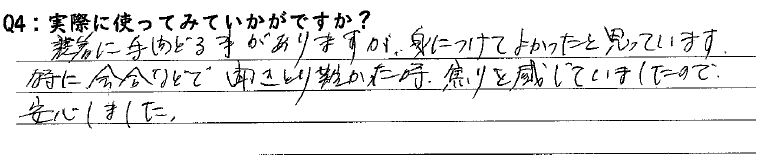 Q4：実際に使ってみていかがですか？
装着に手間どる事がありますが、身につけてよかったと思っています。
時に会合などで聞きとり難かった時、焦りを感じていましたので、
安心しました。